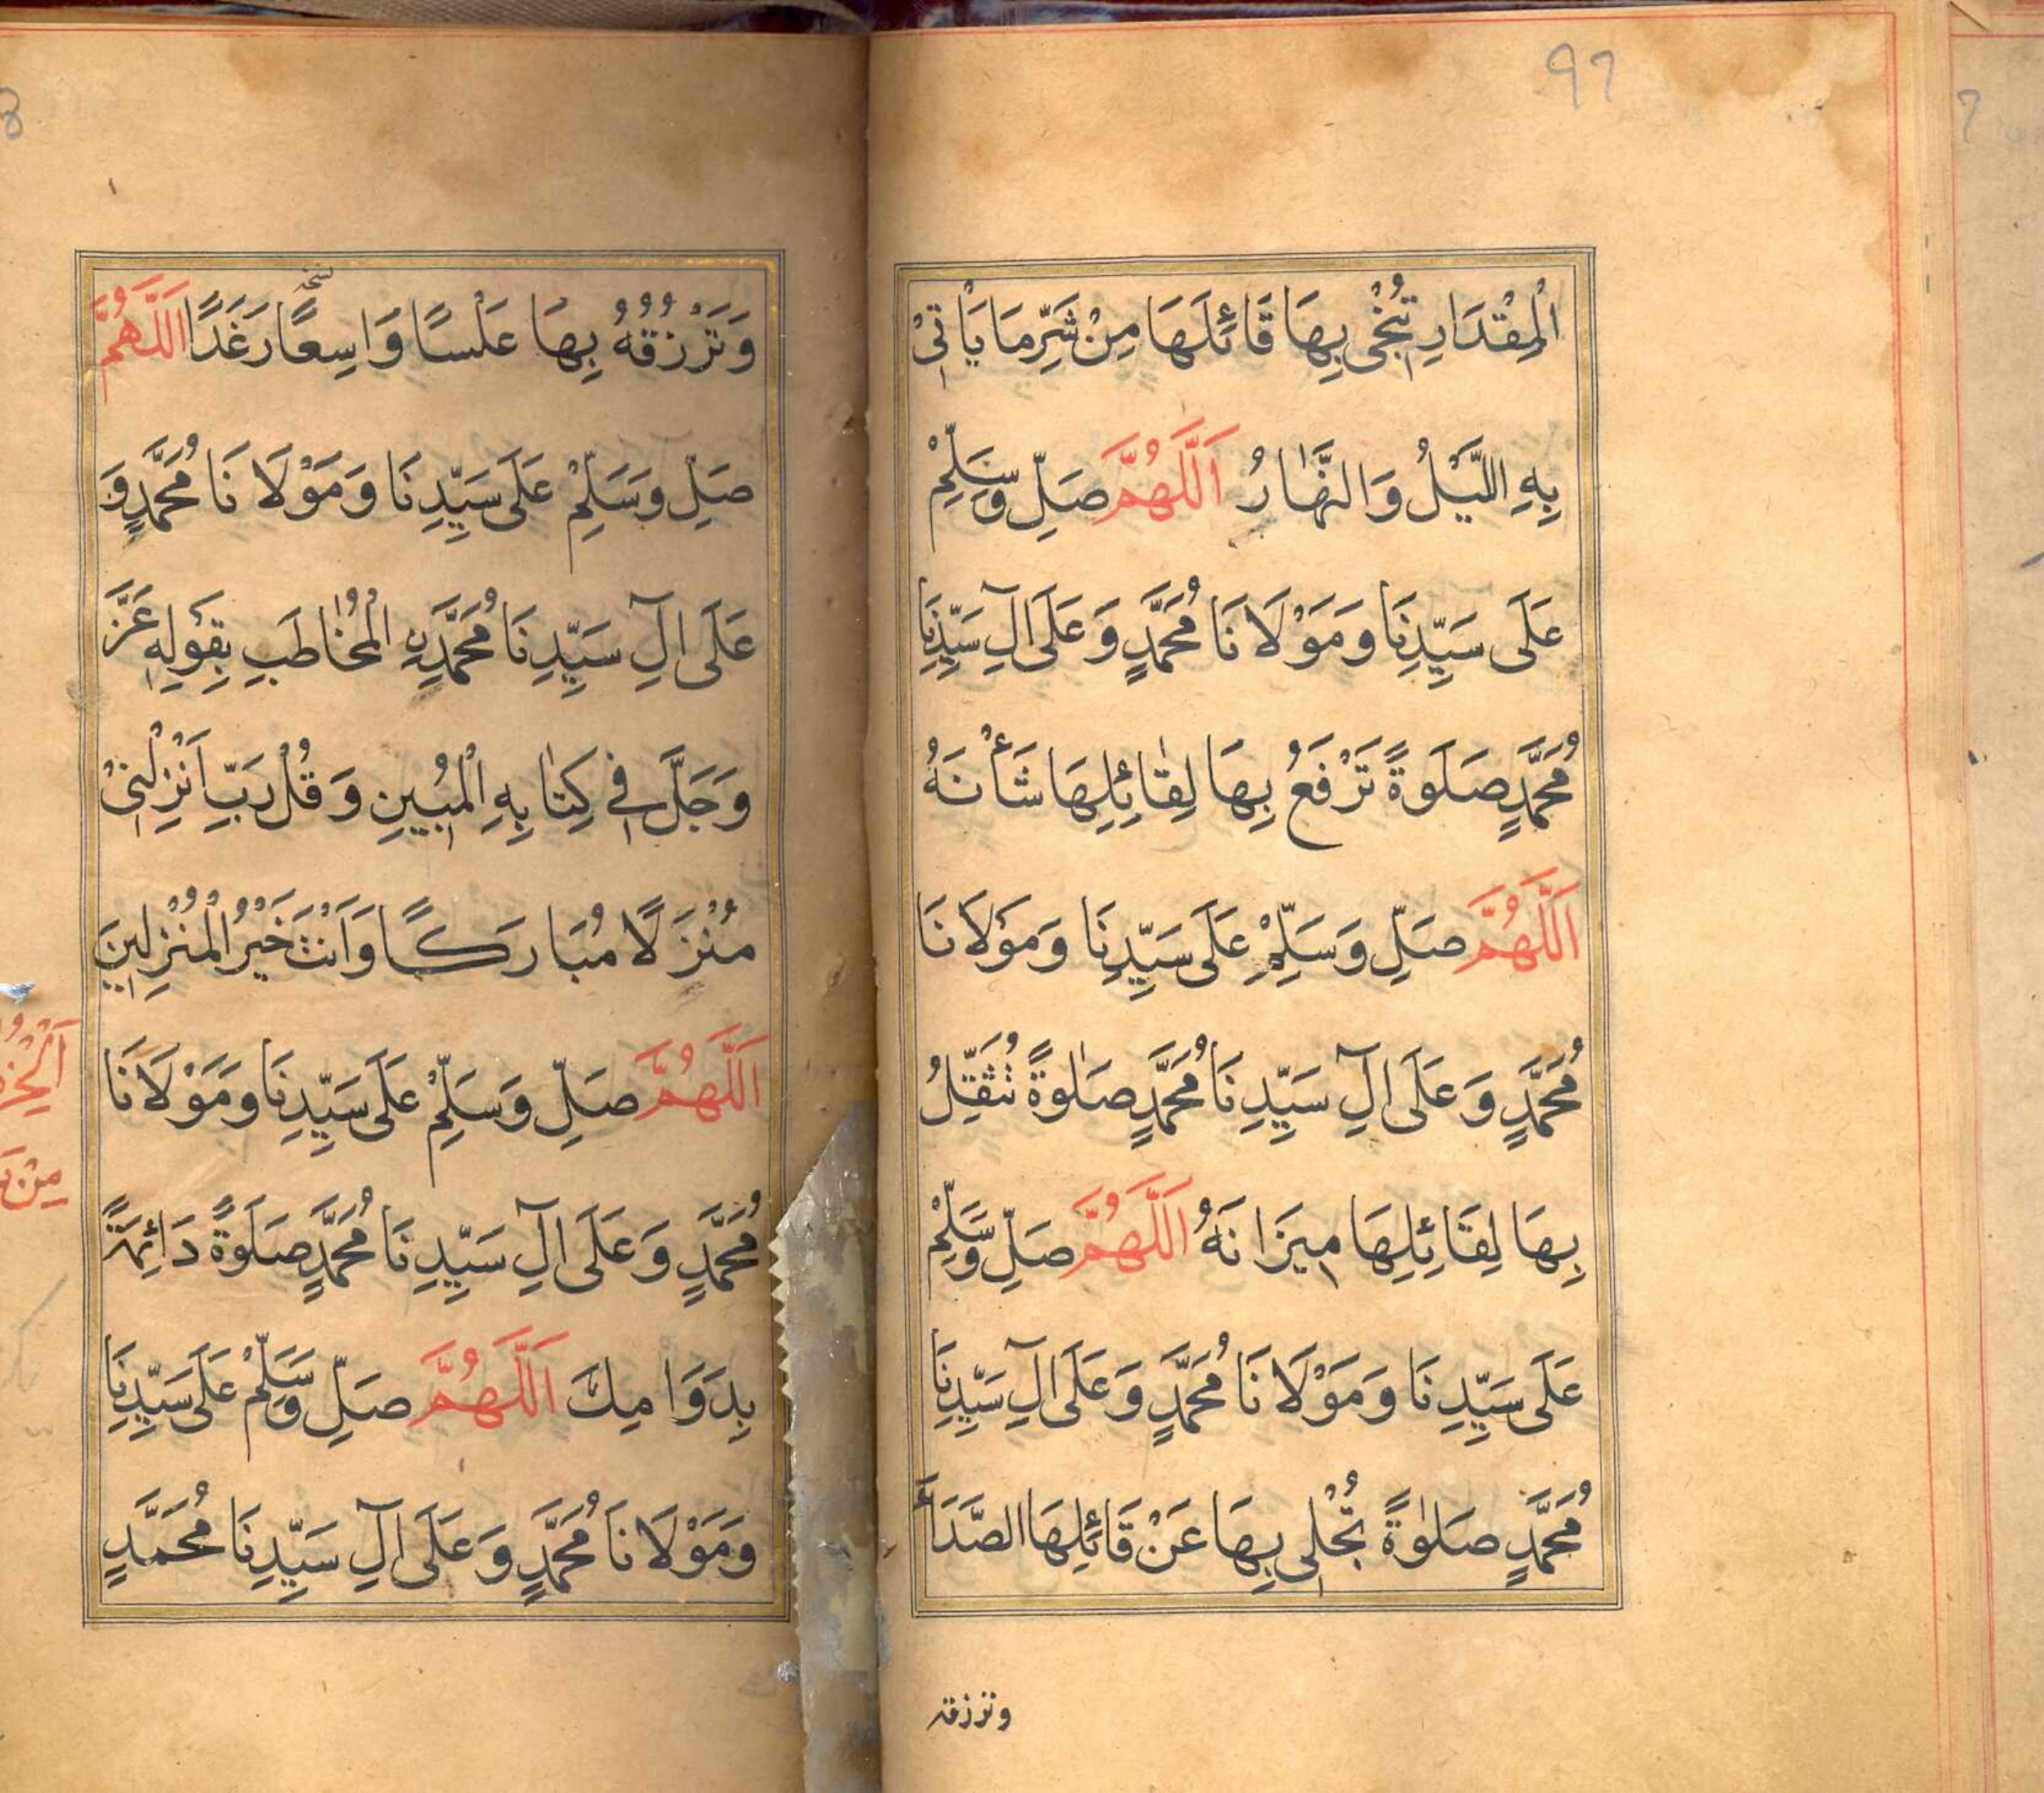 97
الْمِقْدَارِ تُنْجِي بِهَا قَائِلَهَا مِنْ شَرِّ مَا يَأْتِيْ
بِهِ اللَّيْلُ وَالنَّهَارُ اَللّٰهُمَّ صَلِّ وَسَلِّمْ
عَلَى سَيِّدِنَا وَمَوْلَانَا مُحَمَّدٍ وَعَلَى اٰلِ سَيِّدِنَا
مُحَمَّدٍ صَلَوةً تَرْفَعُ بِهَا لِقَائِلِهَا شَأْنَهُ
اَللّٰهُمَّ صَلِّ وَسَلِّمْ عَلَى سَيِّدِنَا وَمَوْلَانَا
مُحَمَّدٍ وَعَلَى اٰلِ سَيِّدِنَا مُحَمَّدٍ صَلٰوةً تُثَقِّلُ
بِهَا لِقَائِلِهَا مِيزَانَهُ اَللّٰهُمَّ صَلِّ وَسَلِّمْ
عَلَى سَيِّدِنَا وَمَوْلَانَا مُحَمَّدٍ وَعَلَى اٰلِ سَيِّدِنَا
مُحَمَّدٍ صَلٰوةً تُجْلِي بِهَا عَنْ قَائِلِهَا الصَّدَأَ
وترزقه
وَتَرْزُقُهُ بِهَا عَلْسًا وَاسِعًا رَغَدًا اَللّٰهُمَّ
صَلِّ وَسَلِّمْ عَلَى سَيِّدِنَا وَمَوْلَانَا مُحَمَّدٍ وَ
عَلَى اٰلِ سَيِّدِنَا مُحَمَّدِنِ الْمُخَاطَبِ بِقَوْلِهِ عَزَّ
وَجَلَّ فِي كِتَابِهِ الْمُبِينِ وَقُلْ رَبِّ اَنْزِلْنِيْ
مُنْزَلًا مُبَارَكًا وَاَنْتَ خَيْرُ الْمُنْزِلِينَ
اَللّٰهُمَّ صَلِّ وَسَلِّمْ عَلَى سَيِّدِنَا وَمَوْلَانَا
مُحَمَّدٍ وَعَلَى اٰلِ سَيِّدِنَا مُحَمَّدٍ صَلَوةً دَائِمَةً
بِدَوَامِكَ اَللّٰهُمَّ صَلِّ وَسَلِّمْ عَلَى سَيِّدِنَا
وَمَوْلَانَا مُحَمَّدٍ وَعَلَى اٰلِ سَيِّدِنَا مُحَمَّدٍ